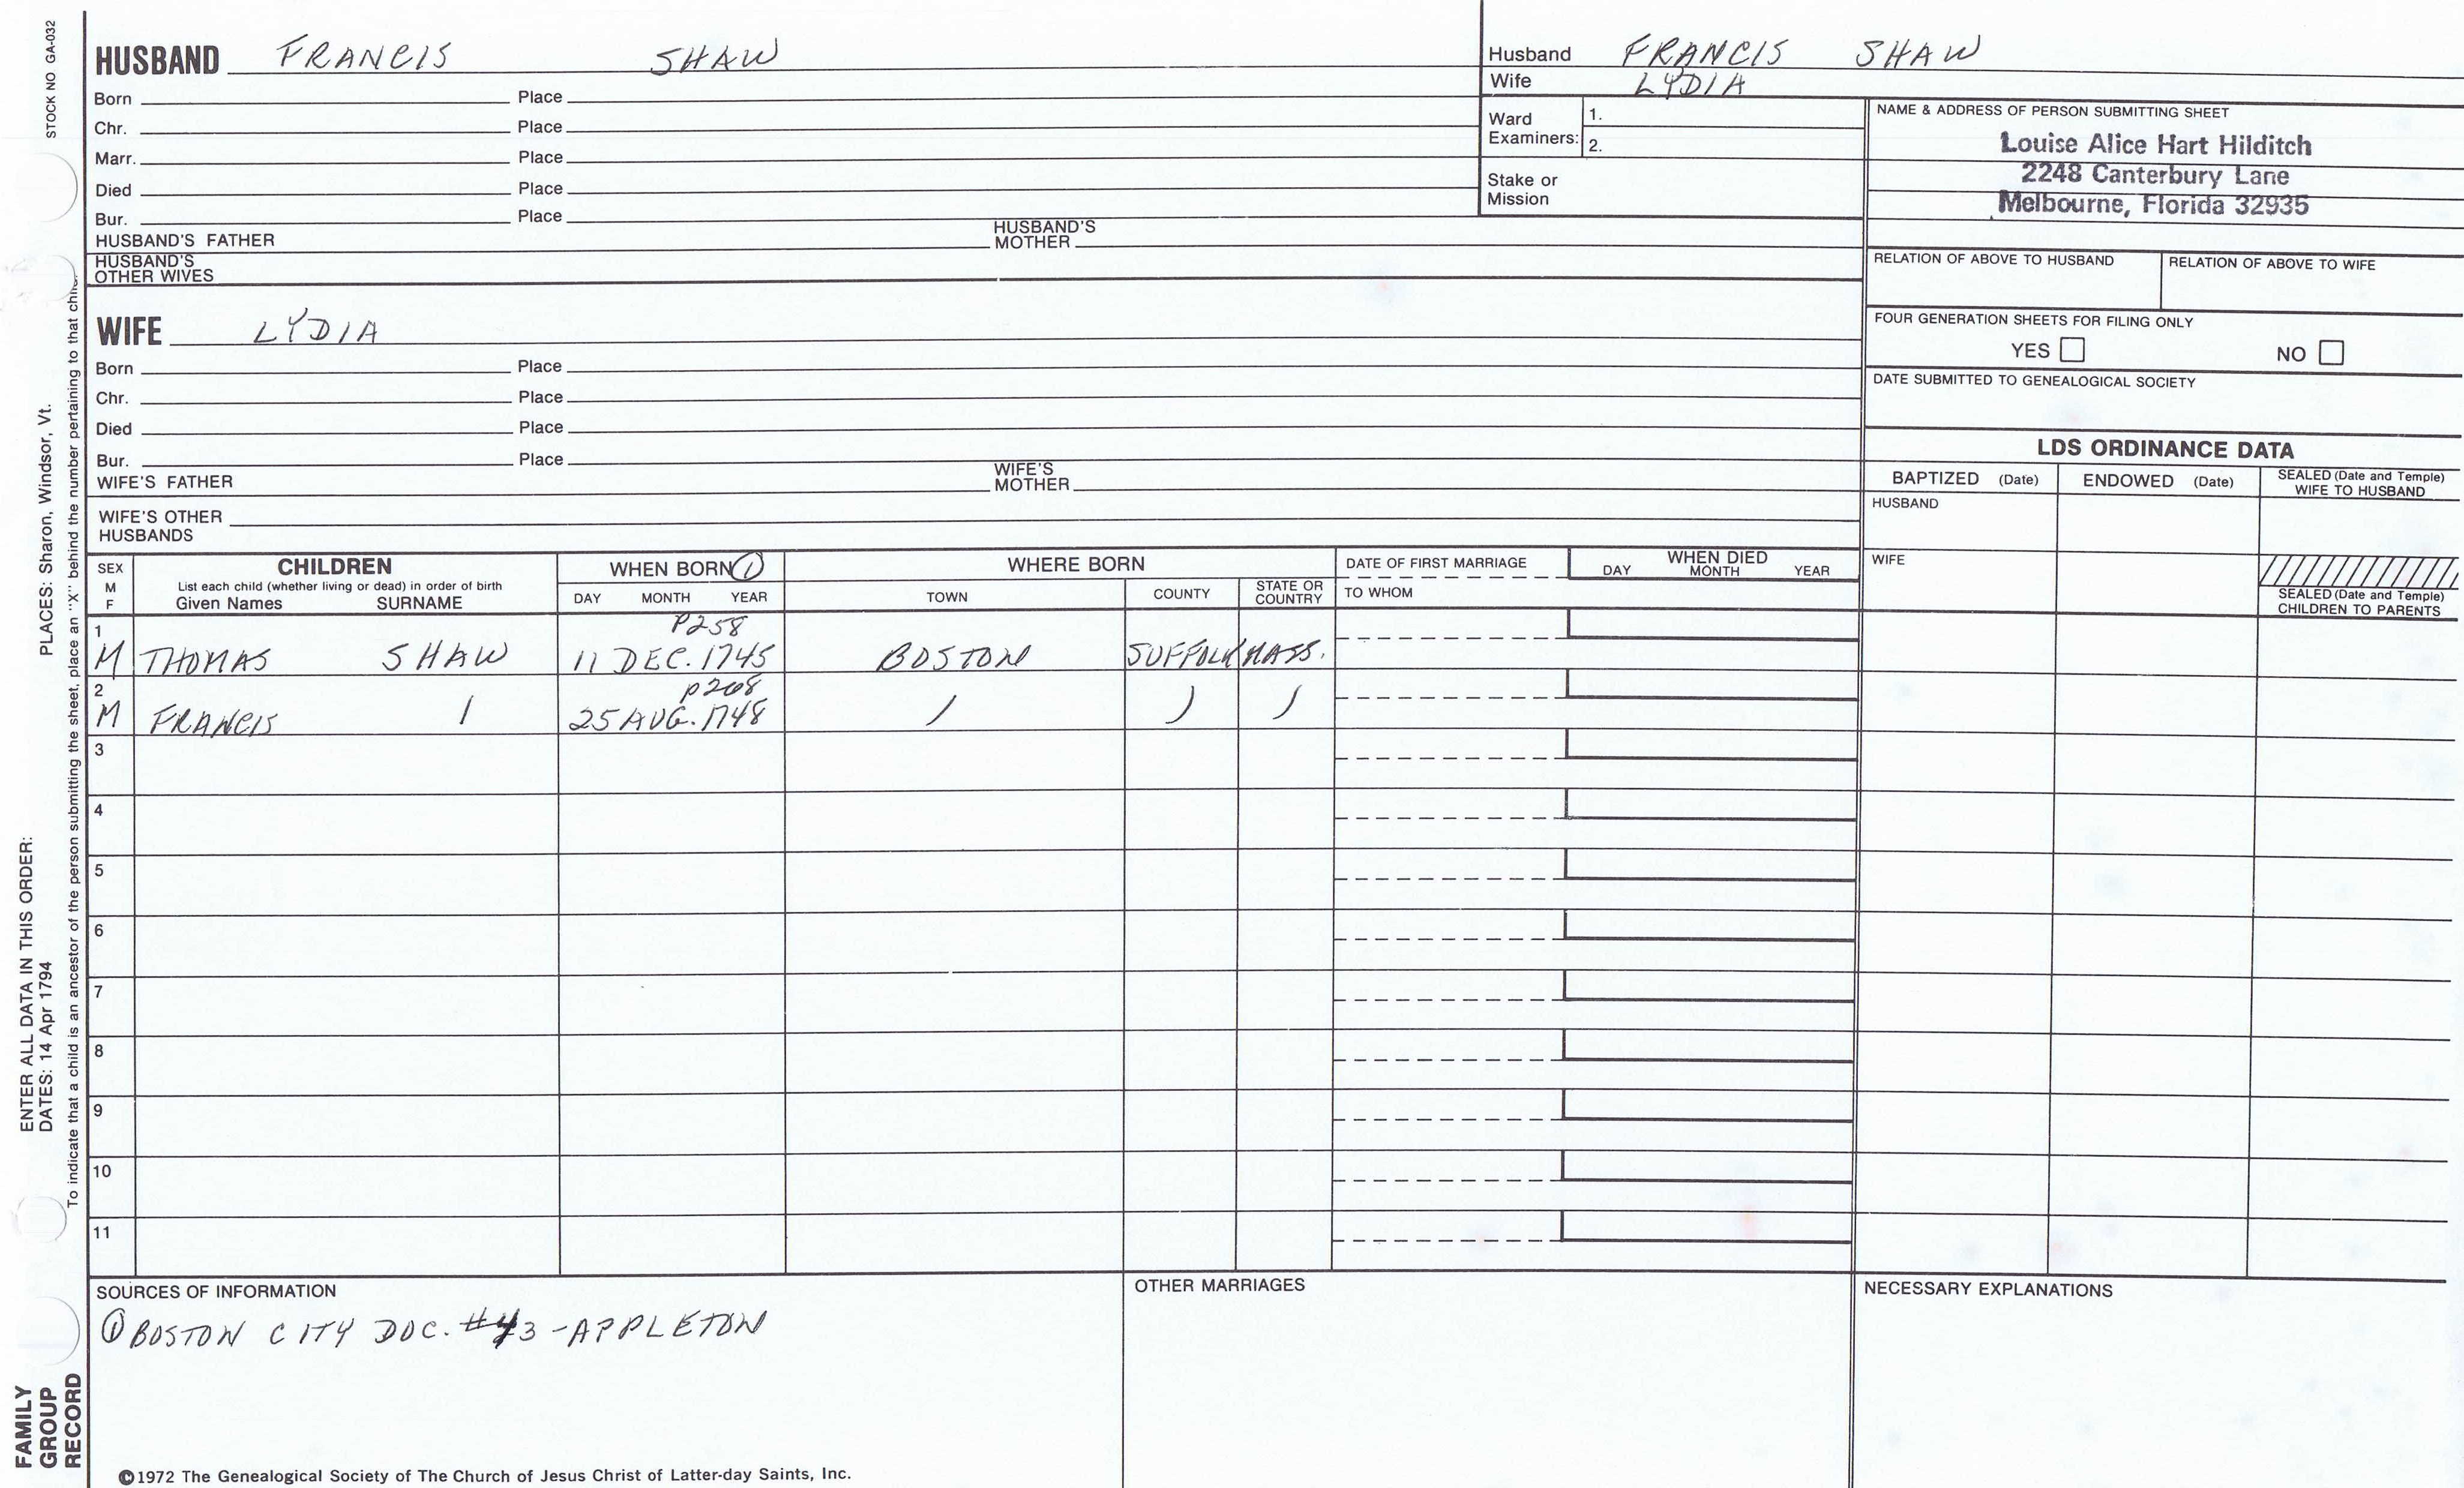 STOCK NO GA-032
HUSBAND FRANCIS SHAW
Born Place
Chr. Place
Marr. Place
Died Place
Bur. Place
HUSBAND'S FATHER HUSBAND'S MOTHER
HUSBAND'S OTHER WIVES
WIFE LYDIA
Born Place
Chr. Place
Died Place
Bur. Place
WIFE'S FATHER WIFE'S MOTHER
WIFE'S OTHER HUSBANDS
Husband FRANCIS SHAW
Wife LYDIA
Ward Examiners: 1.
2.
Stake or Mission
NAME & ADDRESS OF PERSON SUBMITTING SHEET
Louise Alice Hart Hilditch
2248 Canterbury Lane
Melbourne, Florida 32935
RELATION OF ABOVE TO HUSBAND RELATION OF ABOVE TO WIFE
FOUR GENERATION SHEETS FOR FILING ONLY
YES NO
DATE SUBMITTED TO GENEALOGICAL SOCIETY
LDS ORDINANCE DATA
BAPTIZED (Date) ENDOWED (Date) SEALED (Date and Temple) WIFE TO HUSBAND
HUSBAND
WIFE
SEALED (Date and Temple) CHILDREN TO PARENTS
SEX M F
CHILDREN
List each child (whether living or dead) in order of birth
Given Names SURNAME
WHEN BORN ①
DAY MONTH YEAR
WHERE BORN
TOWN COUNTY STATE OR COUNTRY
DATE OF FIRST MARRIAGE
TO WHOM
WHEN DIED
DAY MONTH YEAR
1 P258
M THOMAS SHAW 11 DEC. 1745 BOSTON SUFFOLK MASS.
2 p268
M FRANCIS / 25 AUG. 1748 / ) )
3
4
5
6
7
8
9
10
11
SOURCES OF INFORMATION
① BOSTON CITY DOC. #43 - APPLETON
OTHER MARRIAGES
NECESSARY EXPLANATIONS
©1972 The Genealogical Society of The Church of Jesus Christ of Latter-day Saints, Inc.
FAMILY
GROUP
RECORD
ENTER ALL DATA IN THIS ORDER:
DATES: 14 Apr 1794 PLACES: Sharon, Windsor, Vt.
To indicate that a child is an ancestor of the person submitting the sheet, place an "X" behind the number pertaining to that